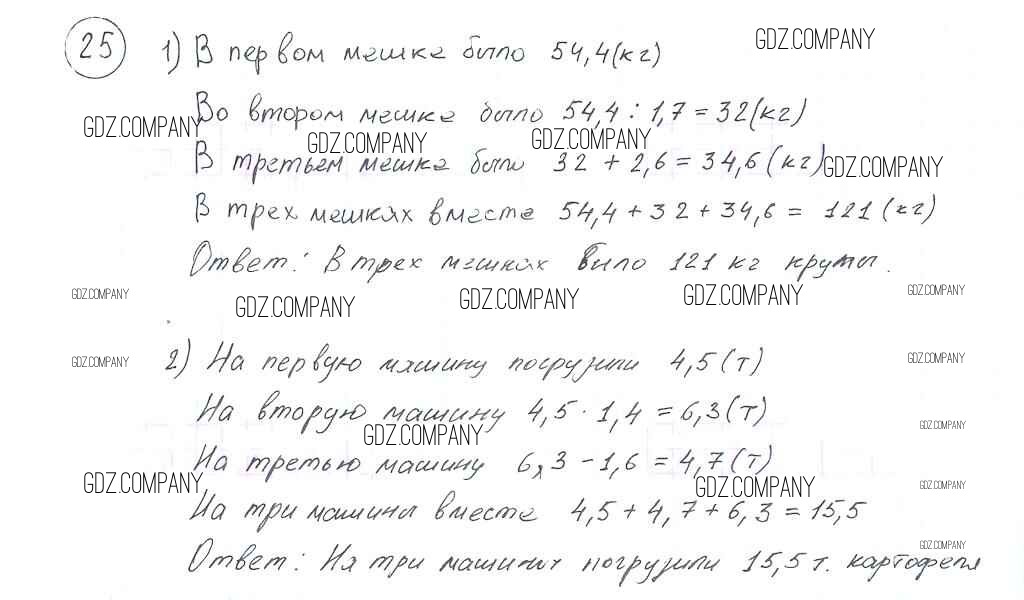 25 1) В первом мешке было 54,4(кг) GDZ.COMPANY
Во втором мешке было 54,4 : 1,7 = 32(кг)
GDZ.COMPANY GDZ.COMPANY GDZ.COMPANY
В третьем мешке было 32 + 2,6 = 34,6(кг) GDZ.COMPANY
В трех мешках вместе 54,4 + 32 + 34,6 = 121(кг)
Ответ: В трех мешках было 121 кг крупы.
GDZ.COMPANY GDZ.COMPANY GDZ.COMPANY GDZ.COMPANY GDZ.COMPANY
GDZ.COMPANY 2) На первую машину погрузили 4,5(т) GDZ.COMPANY
На вторую машину 4,5 · 1,4 = 6,3(т)
GDZ.COMPANY GDZ.COMPANY
На третью машину 6,3 - 1,6 = 4,7(т)
GDZ.COMPANY GDZ.COMPANY GDZ.COMPANY
На три машины вместе 4,5 + 4,7 + 6,3 = 15,5
GDZ.COMPANY
Ответ: На три машины погрузили 15,5 т. картофеля